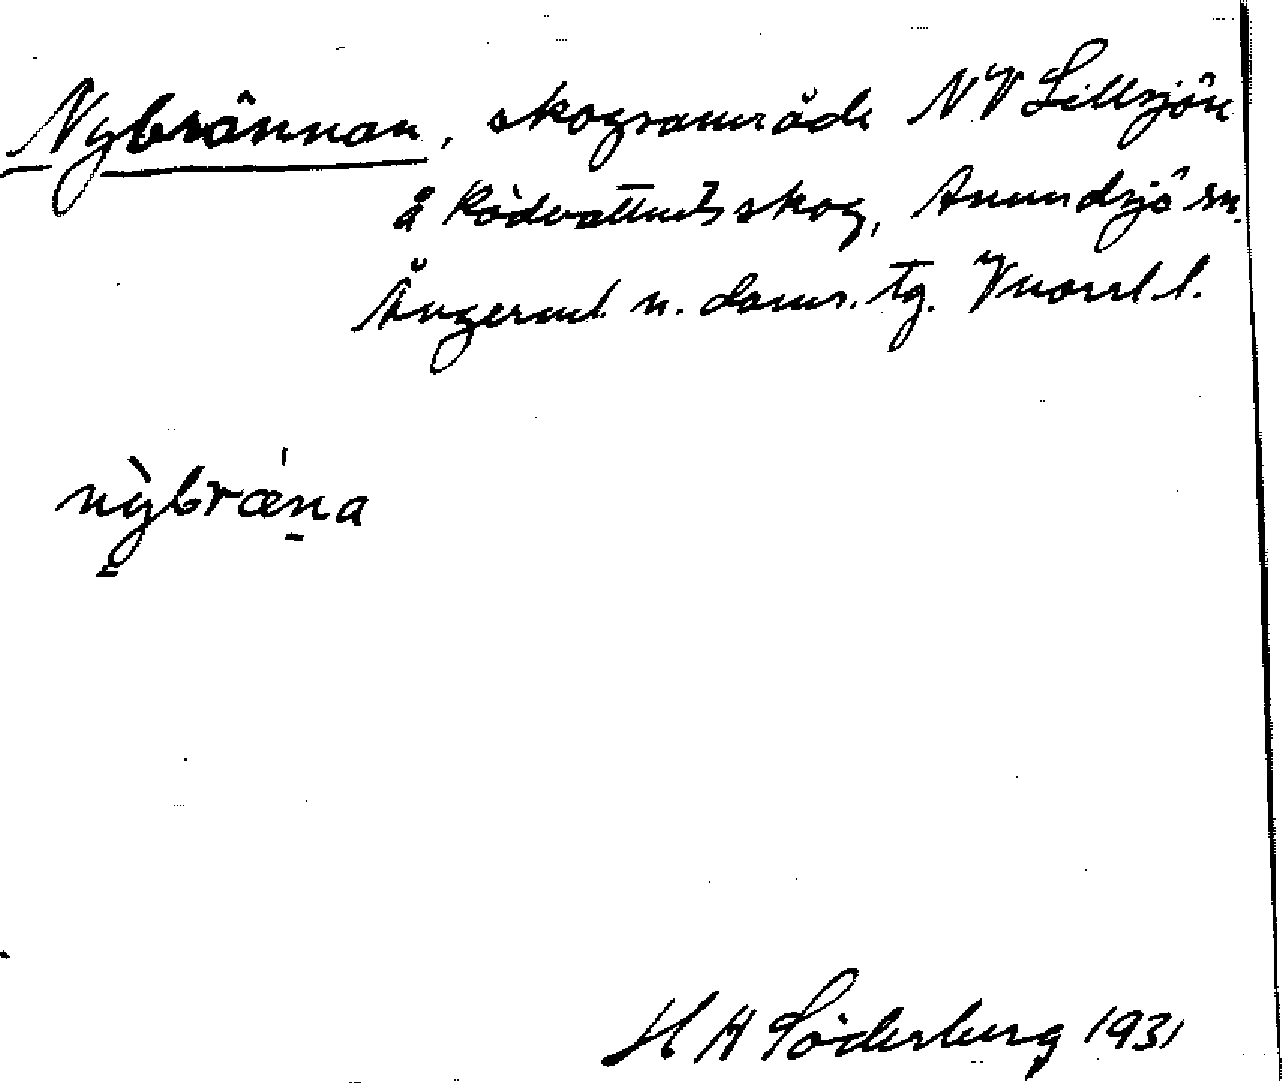 Nybrännan, skogsområde NV Lillsjön
å Rödvattnets skog, Anundsjö sn.
Ångerml. n. doms. tg. Vnorrl. l.
nỳbræ̀na
H A Söderberg 1931